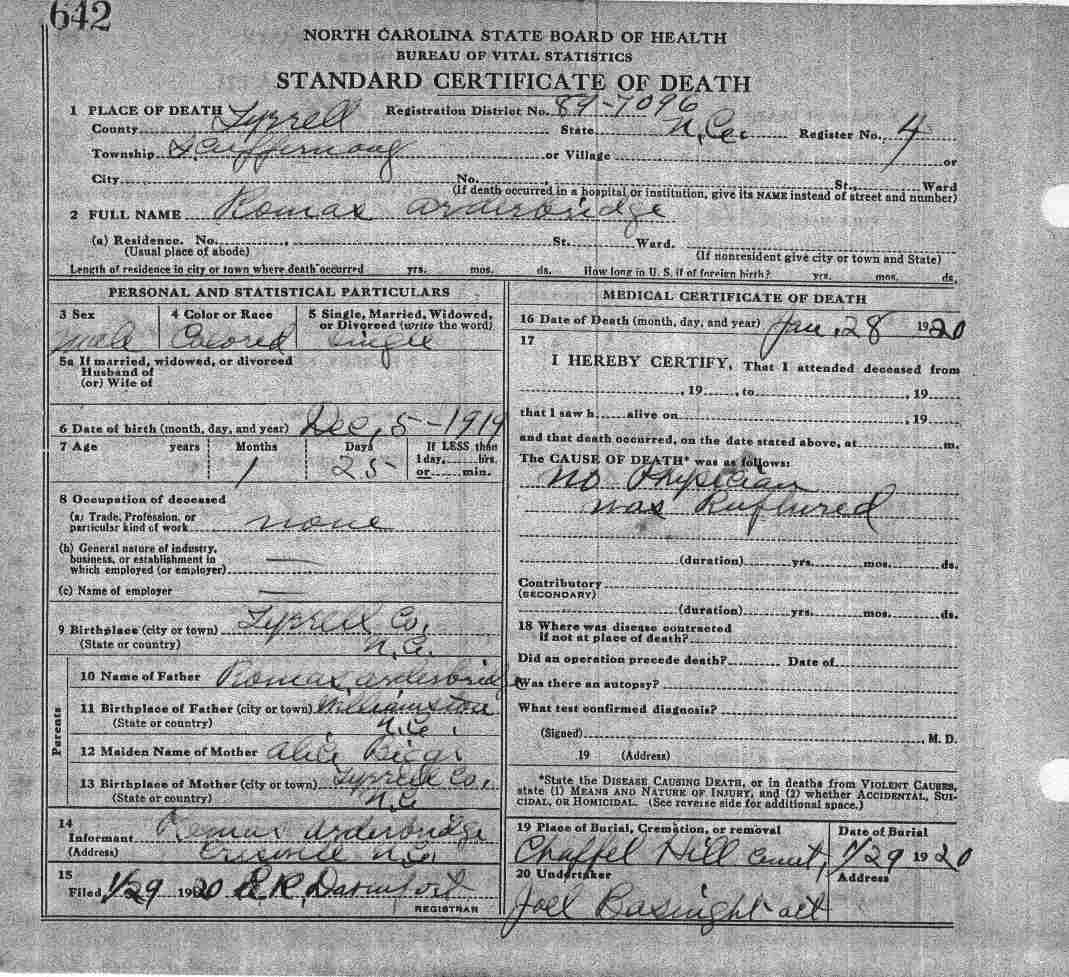 642
NORTH CAROLINA STATE BOARD OF HEALTH
BUREAU OF VITAL STATISTICS
STANDARD CERTIFICATE OF DEATH
1 PLACE OF DEATH Registration District No. 89-7096
County Tyrrell State N.Ca. Register No. 4
Township or Village or
City No. St., Ward
(If death occurred in a hospital or institution, give its NAME instead of street and number)
2 FULL NAME Romax Arderbridge
(a) Residence. No. St. Ward.
(Usual place of abode) (If nonresident give city or town and State)
Length of residence in city or town where death occurred yrs. mos. ds. How long in U. S. if of foreign birth? yrs. mos. ds.
PERSONAL AND STATISTICAL PARTICULARS
3 Sex 4 Color or Race 5 Single, Married, Widowed,
or Divorced (write the word)
male Colored Single
5a If married, widowed, or divorced
Husband of
(or) Wife of
6 Date of birth (month, day, and year) Dec, 5-1919
7 Age years Months Days If LESS than
1 day, hrs.
1 25 or min.
8 Occupation of deceased
(a) Trade, Profession, or
particular kind of work none
(b) General nature of industry,
business, or establishment in
which employed (or employer)
(c) Name of employer
9 Birthplace (city or town) Tyrrell Co,
(State or country) N.C.
Parents
10 Name of Father Romax Arderbridge
11 Birthplace of Father (city or town) Williamston
(State or country) N.C.
12 Maiden Name of Mother Alice Biggs
13 Birthplace of Mother (city or town) Tyrrell Co,
(State or country) N.C
14
Informant Romax Arderbridge
(Address) N.C.
15
Filed 1/29 1920 Davenport
REGISTRAR
MEDICAL CERTIFICATE OF DEATH
16 Date of Death (month, day, and year) Jan, 28 1920
17
I HEREBY CERTIFY, That I attended deceased from
, 19 , to , 19
that I saw h alive on , 19
and that death occurred, on the date stated above, at m.
The CAUSE OF DEATH* was as follows:
No Physician
was Ruptured
(duration) yrs. mos. ds.
Contributory
(SECONDARY)
(duration) yrs. mos. ds.
18 Where was disease contracted
if not at place of death?
Did an operation precede death? Date of
Was there an autopsy?
What test confirmed diagnosis?
(Signed) , M. D.
19 (Address)
*State the DISEASE CAUSING DEATH, or in deaths from VIOLENT CAUSES,
state (1) MEANS AND NATURE OF INJURY, and (2) whether ACCIDENTAL, SUI-
CIDAL, OR HOMICIDAL. (See reverse side for additional space.)
19 Place of Burial, Cremation, or removal Date of Burial
Chappel Hill 1/29 1920
20 Undertaker Address
Joel Basnight